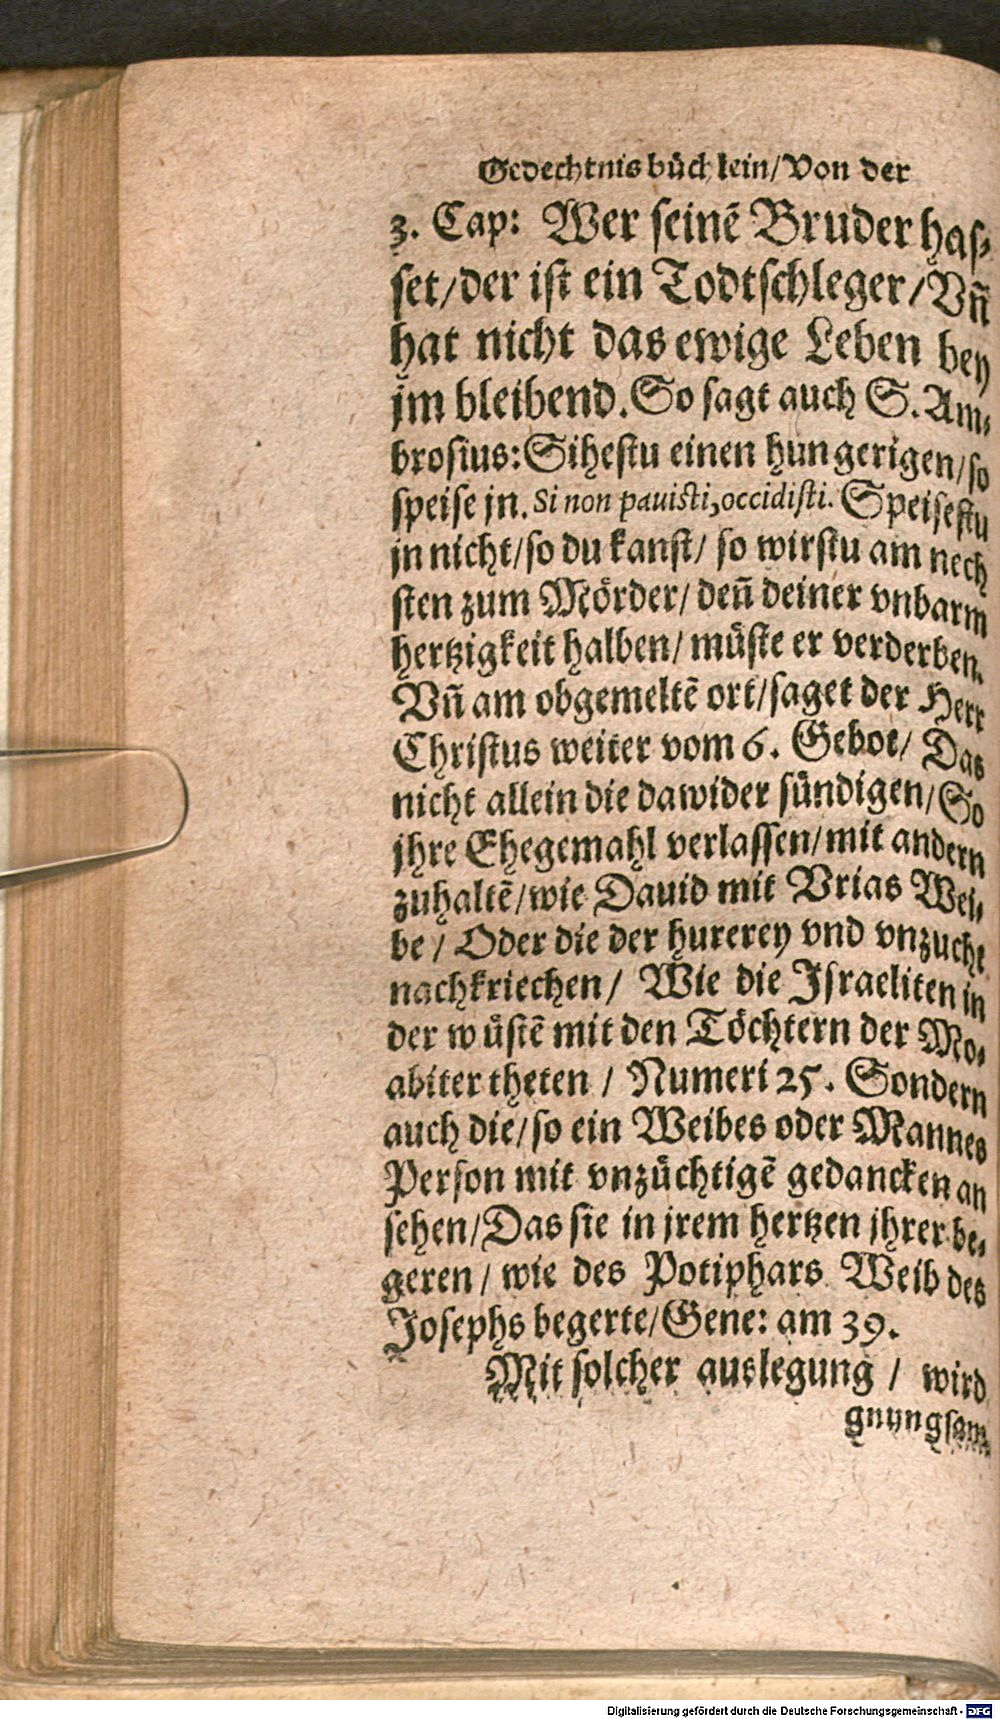 Gedechtnis büchlein/Von der
3. Cap: Wer seinē Bruder has⸗
set/der ist ein Todtschleger/Vn̄
hat nicht das ewige Leben bey
jm bleibend. So sagt auch S. Am⸗
brosius: Sihestu einen hungerigen/so
speise jn. Si non pauisti, occidisti. Speisestu
jn nicht/so du kanst/ so wirstu am nech
sten zum Mörder/ den̄ deiner vnbarm
hertzigkeit halben/ müste er verderben.
Vn̄ am obgemeltē ort/saget der Herr
Christus weiter vom 6. Gebot/ Das
nicht allein die dawider sündigen/So
jhre Ehegemahl verlassen/mit andern
zuhaltē/wie Dauid mit Vrias Wei⸗
be / Oder die der hurerey vnd vnzucht
nachkriechen/ Wie die Israeliten in
der wüstē mit den Töchtern der Mo⸗
abiter theten / Numeri 25. Sondern
auch die/so ein Weibes oder Mannes
Person mit vnzüchtigē gedancken an
sehen/Das sie in jrem hertzen jhrer be⸗
geren / wie des Potiphars Weib des
Josephs begerte/Gene: am 39.
Mit solcher auslegung / wird
gnungsam⸗
Digitalisierung gefördert durch die Deutsche Forschungsgemeinschaft - DFG